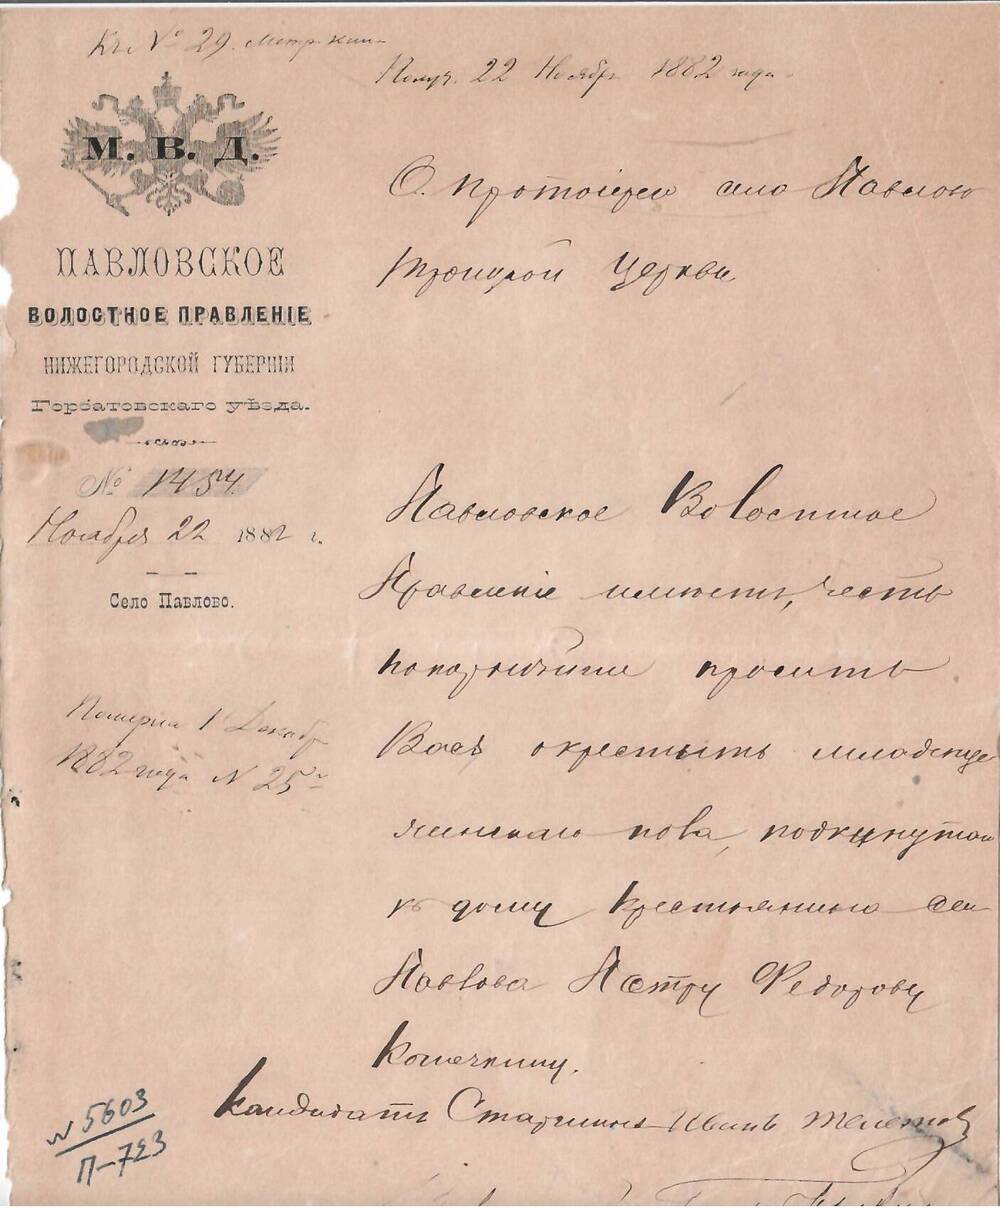 Къ № 29. метр. книг.
Получ. 22 Ноябр. 1882 года.
М. В. Д.
ПАВЛОВСКОЕ
ВОЛОСТНОЕ ПРАВЛЕНІЕ
НИЖЕГОРОДСКОЙ ГУБЕРНІИ
Горбатовскаго уѣзда.
№ 1454.
Ноября 22 1882 г.
Село Павлово.
О. протоіерею села Павлово
троицкой Церкви
Павловское Волостное
Правленіе имѣетъ, честь
покорнѣйше просить
Васъ окрестить младенца
женскаго пола, подкинутаго
къ дому крестьянина села
Павлова Петру Федорову
Кошечкину.
Кандидатъ Старшины Иванъ
1 Декабр
1882 года № 25
№ 5603
П-723